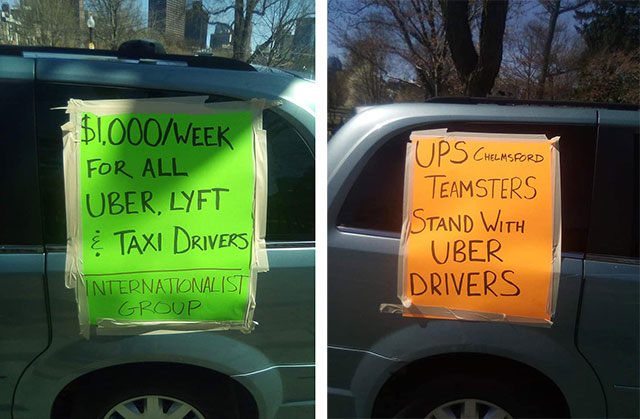 $1,000/WEEK
FOR ALL
UBER, LYFT
& TAXI DRIVERS
INTERNATIONALIST
GROUP
UPS CHELMSFORD
TEAMSTERS
STAND WITH
UBER
DRIVERS